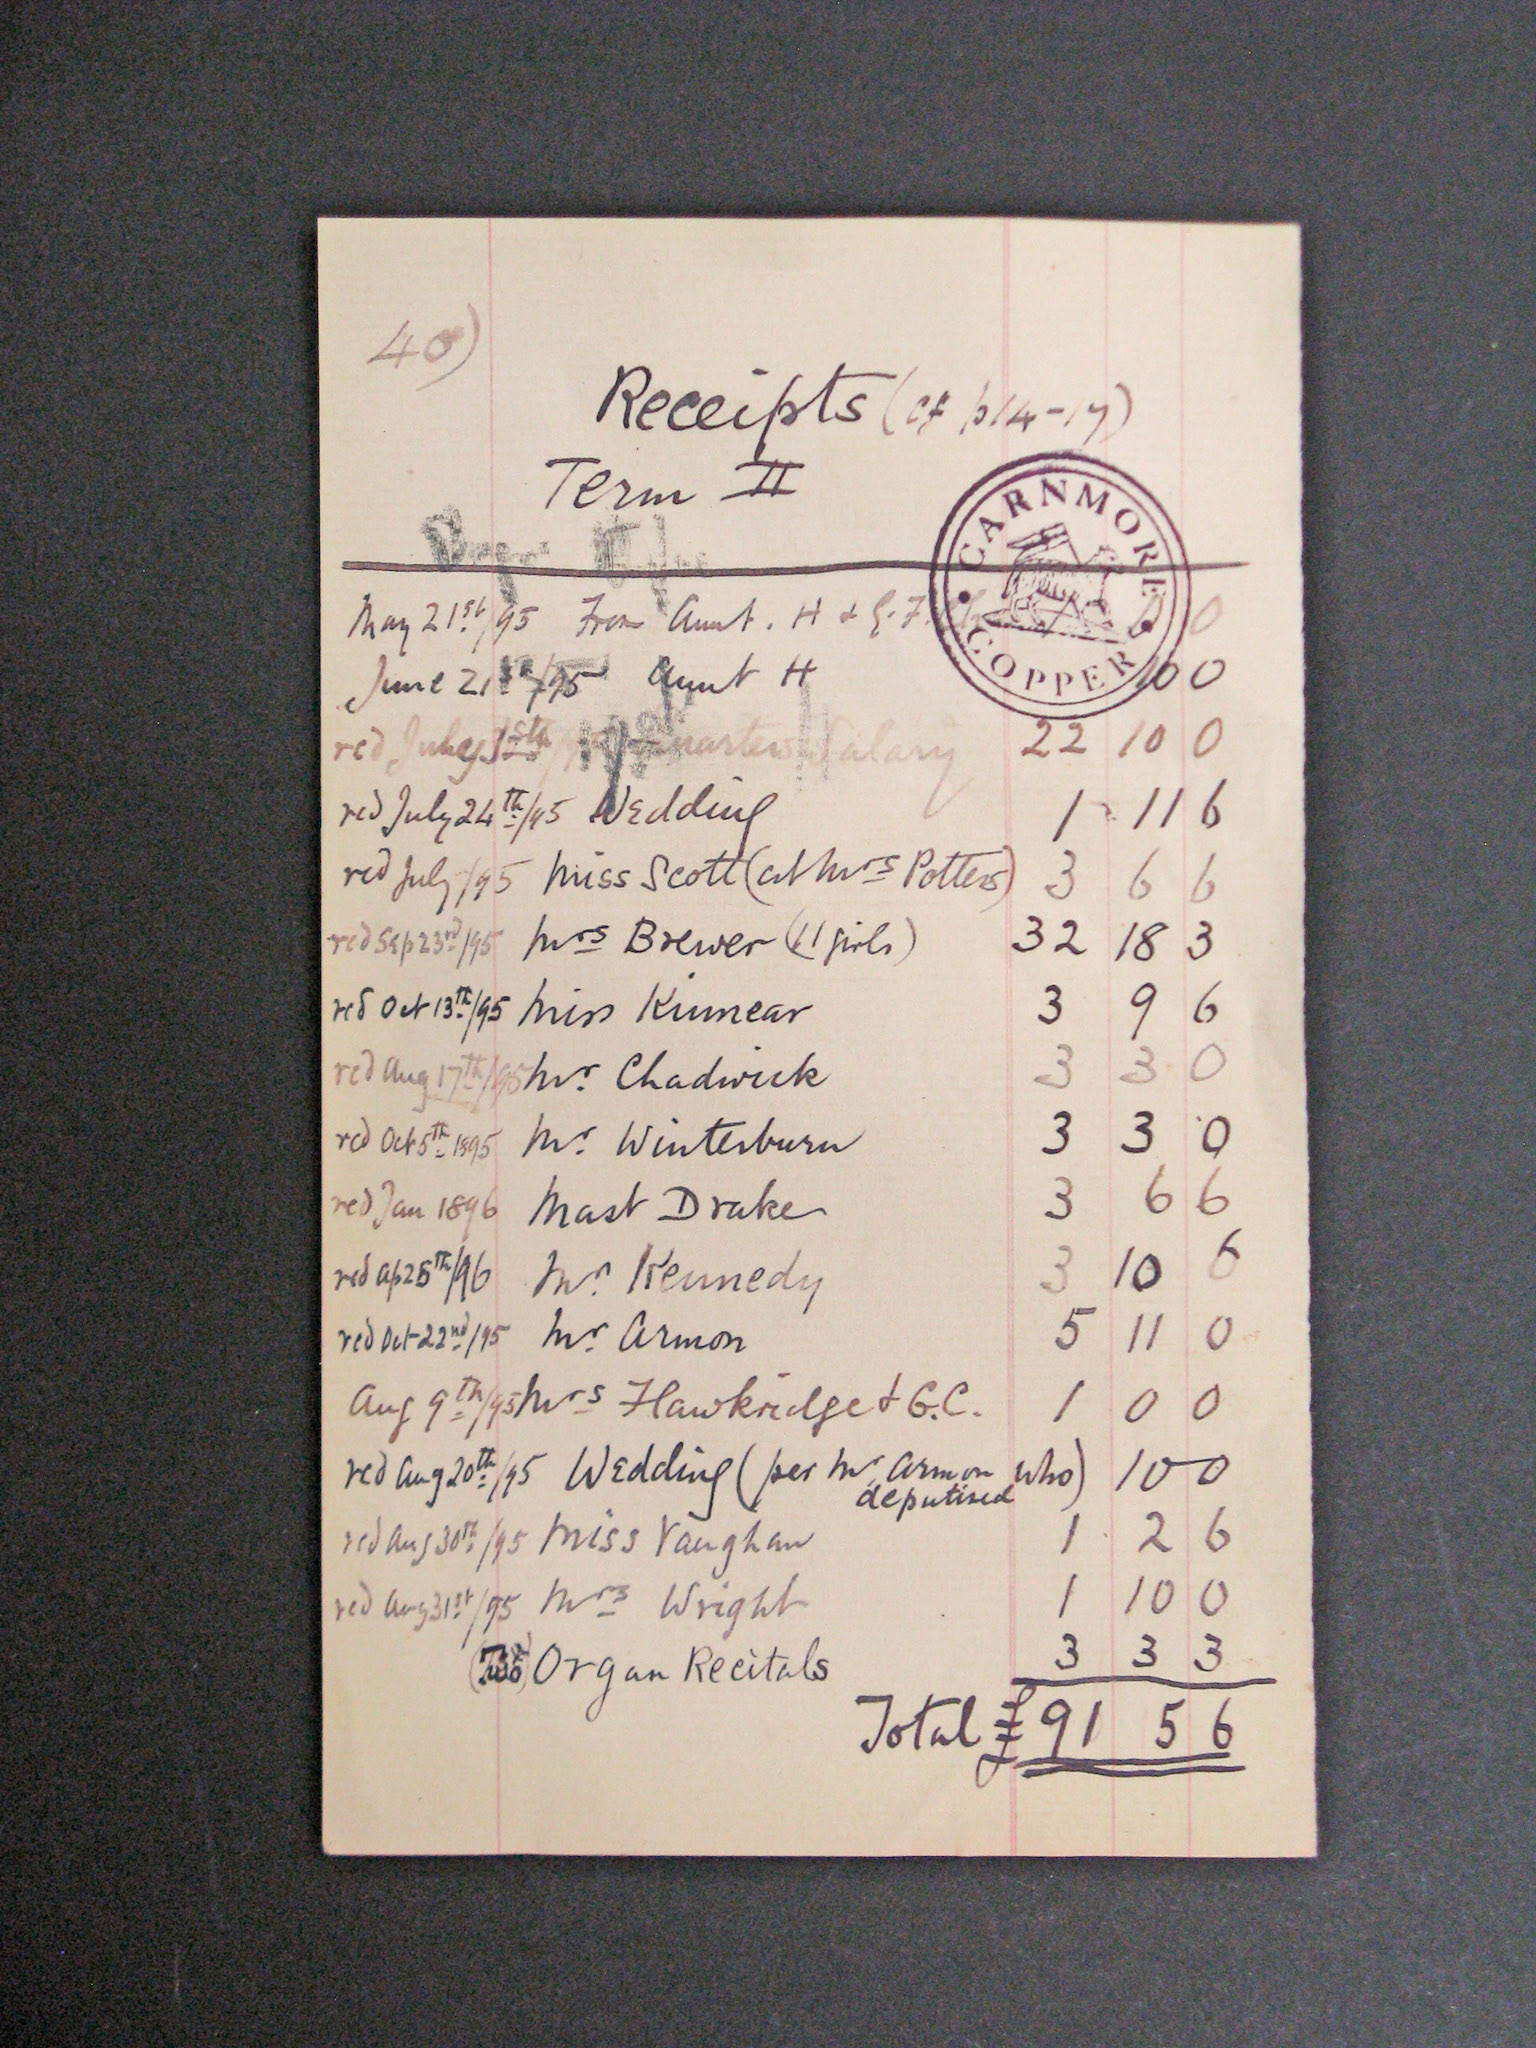 40)
Receipts (cf p14-17)
Term II
CARNMORE COPPER
May 21st/95 From Aunt. H & G. F. 0 0
June 21st/95 Aunt H 10 0
red July /95 Quarters Salary 22 10 0
red July 24th/95 Wedding 1 11 6
red July/95 Miss Scott (at Mrs Potters) 3 6 6
red Sep 23rd/95 Mrs Brewer (11 girls) 32 18 3
red Oct 13th/95 Miss Kinnear 3 9 6
red Aug 17th/95 Mr. Chadwick 3 3 0
red Oct 5th 1895 Mr. Winterburn 3 3 0
red Jan 1896 Mast Drake 3 6 6
red Ap 25th/96 Mr. Kennedy 3 10 6
red Oct 22nd/95 Mr. Armon 5 11 0
Aug 9th/95 Mrs Hawkridge & G.C. 1 0 0
red Aug 20th/95 Wedding (per Mr. Armon who) 10 0
deputised
red Aug 30th/95 Miss Vaughan 1 2 6
red Aug 31st/95 Mrs Wright 1 10 0
(Two) Organ Recitals 3 3 3
Total £ 91 5 6